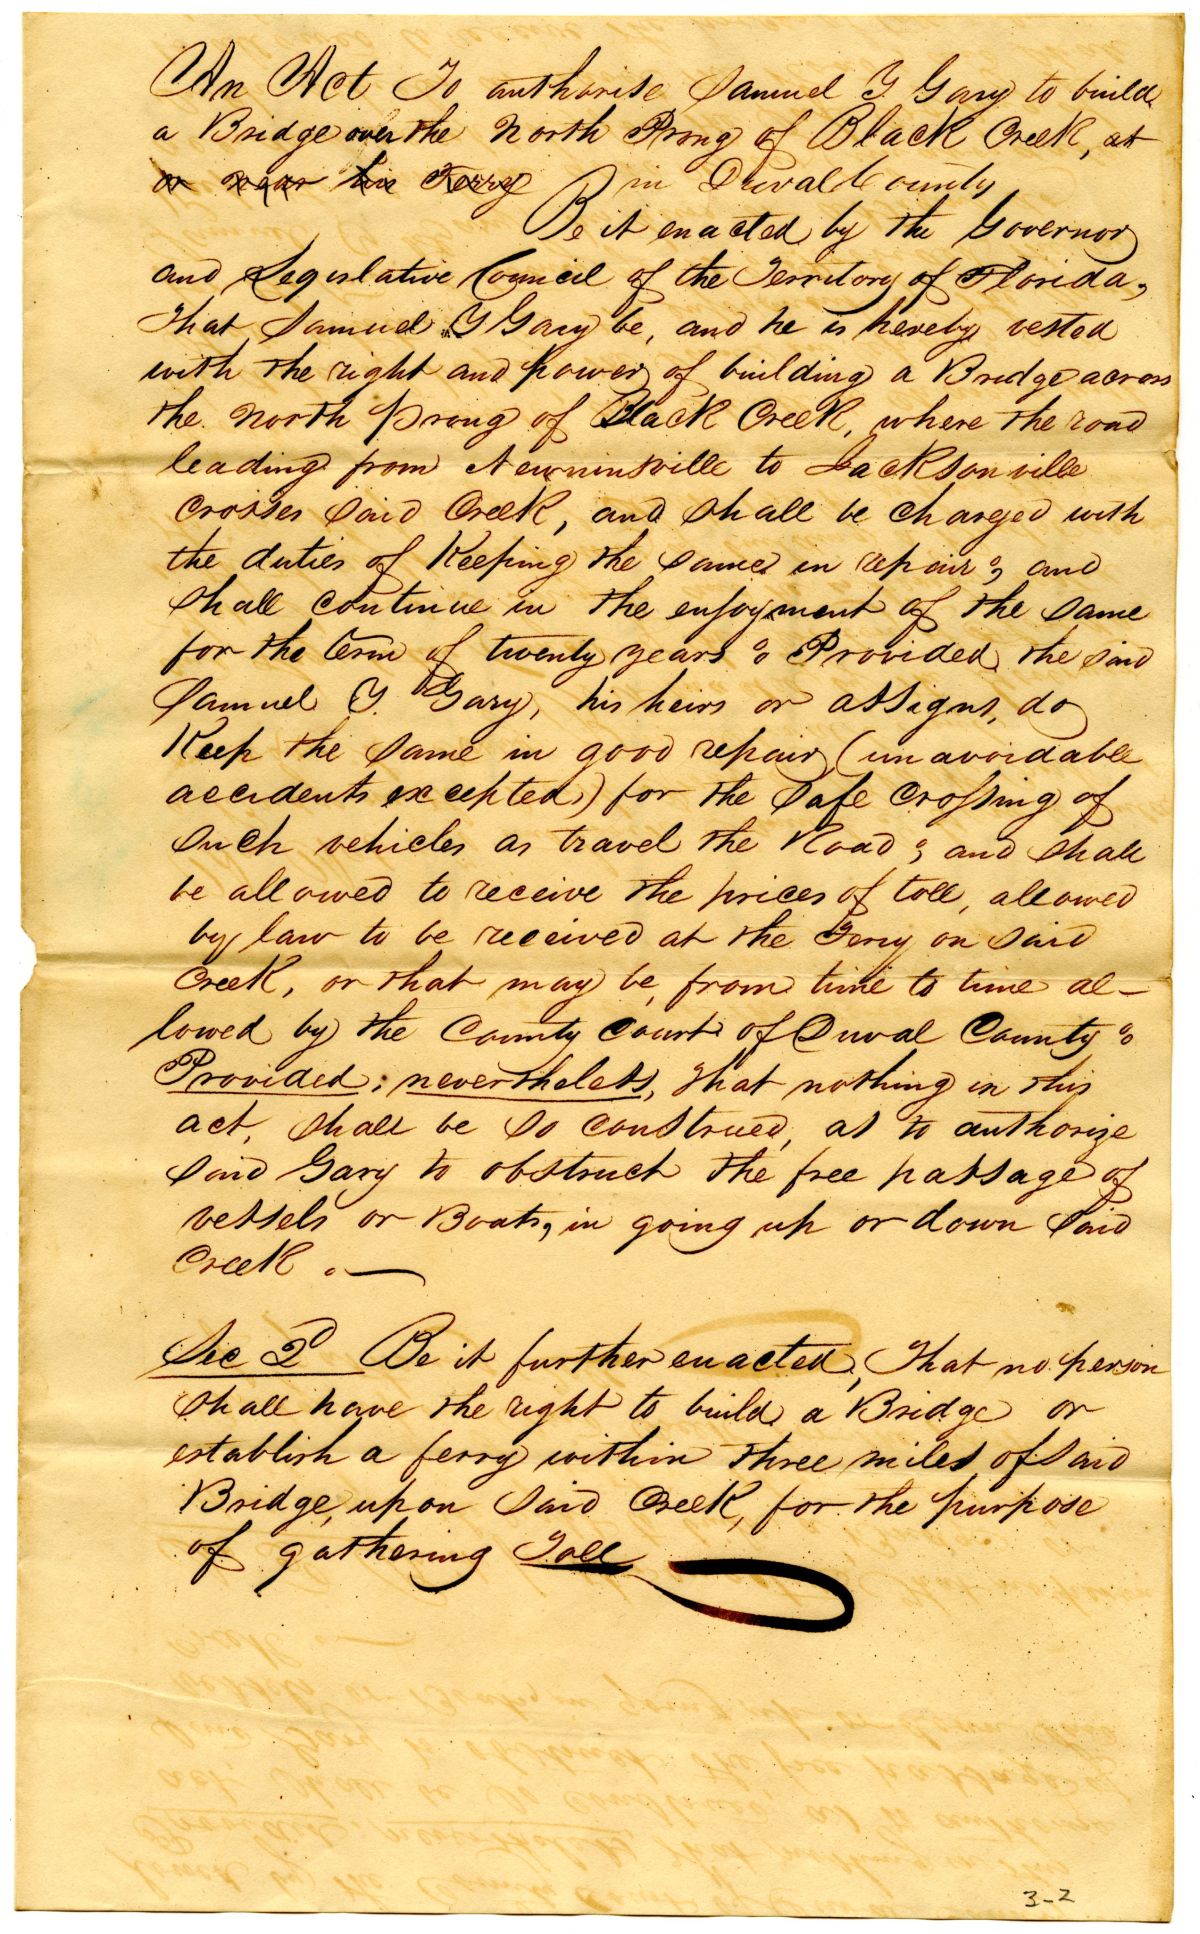 An Act To authorise Samuel Y Gary to build
a Bridge over the North Prong of Black Creek, at
or near his Ferry in Duval County
Be it enacted by the Governor
and Legislative Council of the Territory of Florida,
That Samuel Y Gary be, and he is hereby vested
with the right and power of building a Bridge across
the North prong of Black Creek, where the road
leading from Newninsville to Jacksonville
crosses said Creek, and shall be charged with
the duties of Keeping the same in repair; and
shall continue in the enjoyment of the same
for the term of twenty years: Provided, the said
Samuel Y. Gary, his heirs or assigns, do
Keep the same in good repair (unavoidable
accidents excepted) for the safe Crossing of
such vehicles as travel the Road; and shall
be allowed to receive the prices of toll, allowed
by law to be received at the Ferry on said
Creek, or that may be, from time to time al-
lowed by the County Court of Duval County:
Provided; nevertheless, that nothing in this
act, shall be so construed, as to authorize
said Gary to obstruct the free passage of
vessels or Boats, in going up or down said
Creek.—
Sec 2d Be it further enacted, That no person
shall have the right to build a Bridge or
establish a ferry within three miles of said
Bridge, upon said Creek, for the purpose
of gathering Toll
3-2